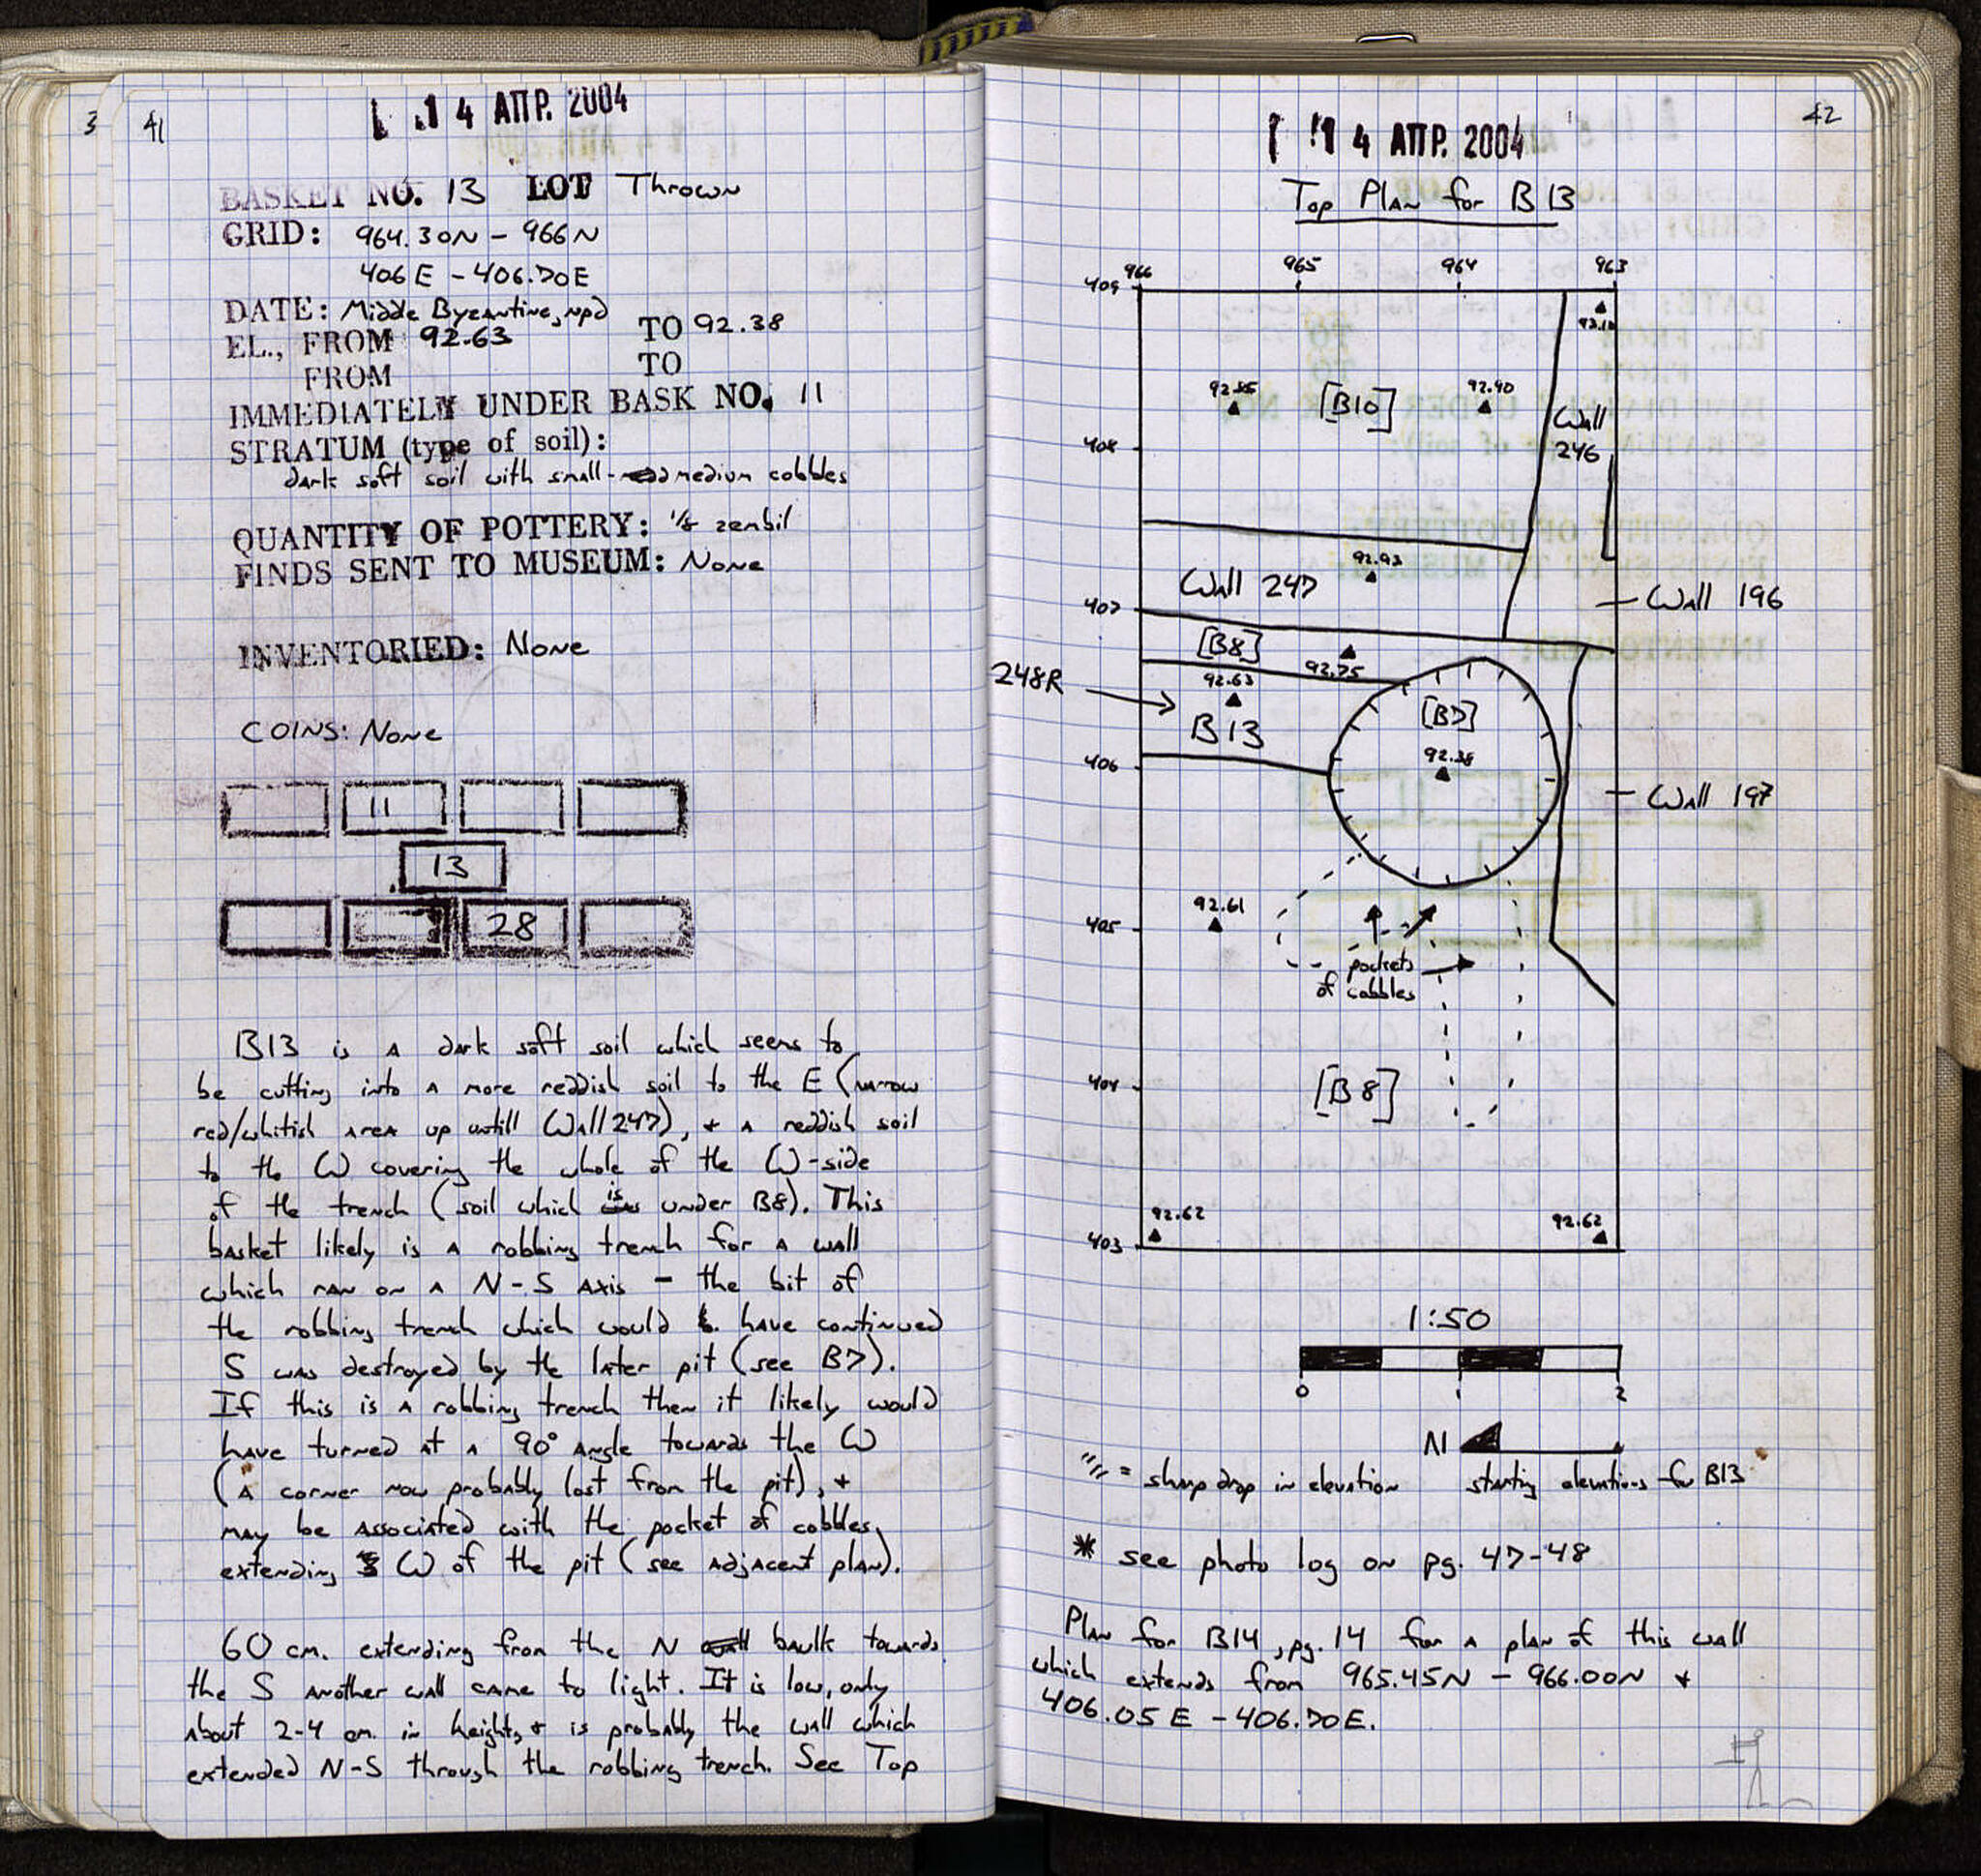 3
41
14 ΑΠΡ. 2004
BASKET NO. 13 LOT Thrown
GRID: 964.30N - 966N
406E - 406.70E
DATE: Middle Byzantine, npd
EL., FROM 92.63 TO 92.38
FROM TO
IMMEDIATELY UNDER BASK NO. 11
STRATUM (type of soil):
dark soft soil with small-medium cobbles
QUANTITY OF POTTERY: 1/8 zembil
FINDS SENT TO MUSEUM: None
INVENTORIED: None
COINS: None
11
13
28
B13 is a dark soft soil which seems to
be cutting into a more reddish soil to the E (narrow
red/whitish area up untill Wall 247), + a reddish soil
to the W covering the whole of the W-side
of the trench (soil which is under B8). This
basket likely is a robbing trench for a wall
which ran on a N-S axis - the bit of
the robbing trench which would have continued
S was destroyed by the later pit (see B7).
If this is a robbing trench then it likely would
have turned at a 90° angle towards the W
(a corner now probably lost from the pit), +
may be associated with the pocket of cobbles
extending W of the pit (see adjacent plan).
60 cm. extending from the N baulk towards
the S another wall came to light. It is low, only
about 2-4 cm. in height, + is probably the wall which
extended N-S through the robbing trench. See Top
42
14 ΑΠΡ. 2004
Top Plan for B13
966 965 964 963
409
92.85 [B10] 92.90
Wall
246
408
92.93
Wall 247
407
Wall 196
[B8]
92.75
248R
92.63
B13
[B7]
92.38
406
Wall 197
92.61
405
pockets
of cobbles
404
[B8]
92.62
92.62
403
1:50
0 1 2
N
= sharp drop in elevation
starting elevations for B13
* see photo log on pg. 47-48
Plan for B14, pg. 14 for a plan of this wall
which extends from 965.45N - 966.00N +
406.05E - 406.70E.